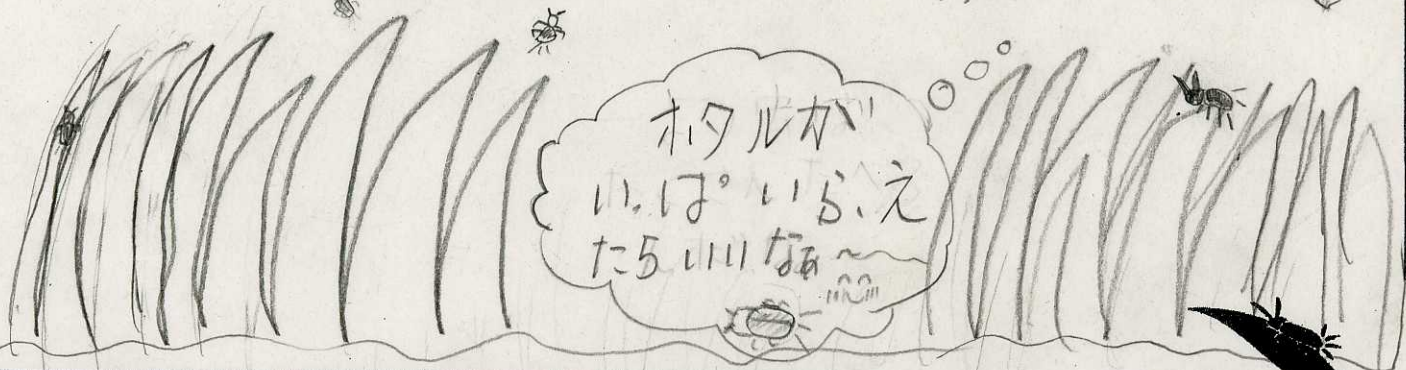 ホタルが
いっぱいらえ
たらいいなぁ～